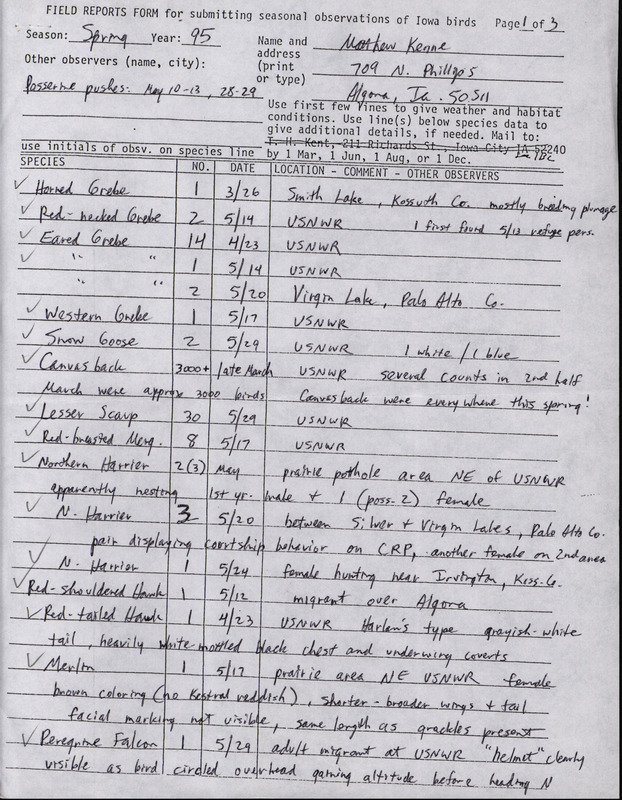 FIELD REPORTS FORM for submitting seasonal observations of Iowa birds Page 1 of 3
Season: Spring Year: 95 Name and Matthew Kenne
address
Other observers (name, city): (print 709 N. Phillips
or type)
Passerine pushes: May 10-13, 28-29 Algona, Ia. 50511
Use first few lines to give weather and habitat
conditions. Use line(s) below species data to
give additional details, if needed. Mail to:
T. H. Kent, 211 Richards St., Iowa City IA 52240
use initials of obsv. on species line by 1 Mar, 1 Jun, 1 Aug, or 1 Dec.
SPECIES NO. DATE LOCATION - COMMENT - OTHER OBSERVERS
✓ Horned Grebe 1 3/26 Smith Lake, Kossuth Co. mostly breeding plumage
✓ Red-necked Grebe 2 5/14 USNWR 1 first found 5/13 refuge pers.
✓ Eared Grebe 14 4/23 USNWR
✓ " " 1 5/14 USNWR
" " 2 5/20 Virgin Lake, Palo Alto Co.
✓ Western Grebe 1 5/17 USNWR
✓ Snow Goose 2 5/29 USNWR 1 white / 1 blue
✓ Canvasback 3000+ late March USNWR several counts in 2nd half
March were approx 3000 birds Canvasback were everywhere this spring!
✓ Lesser Scaup 30 5/29 USNWR
✓ Red-breasted Merg. 8 5/17 USNWR
✓ Northern Harrier 2(3) May prairie pothole area NE of USNWR
apparently nesting 1st yr. male + 1 (poss. 2) female
✓ N. Harrier 3 5/20 between Silver + Virgin Lakes, Palo Alto Co.
pair displaying courtship behavior on CRP, another female on 2nd area
✓ N. Harrier 1 5/24 female hunting near Irvington, Koss. Co.
✓ Red-shouldered Hawk 1 5/12 migrant over Algona
✓ Red-tailed Hawk 1 4/23 USNWR Harlan's type grayish-white
tail, heavily white-mottled black chest and underwing coverts
✓ Merlin 1 5/17 prairie area NE USNWR female
brown coloring (no Kestral reddish), shorter-broader wings + tail
facial marking not visible, same length as grackles present
✓ Peregrine Falcon 1 5/29 adult migrant at USNWR "helmet" clearly
visible as bird circled overhead gaining altitude before heading N